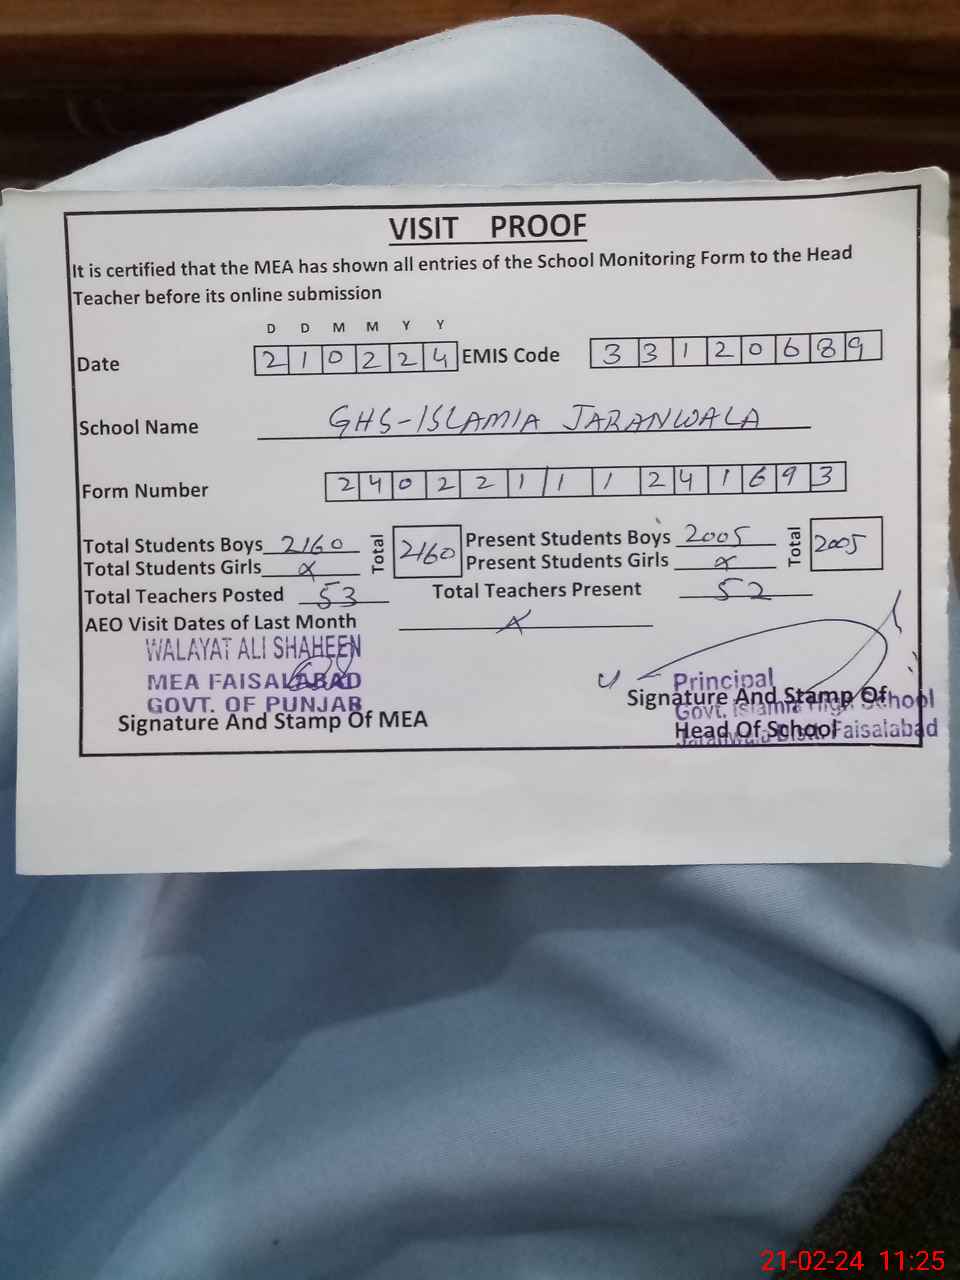 VISIT PROOF
It is certified that the MEA has shown all entries of the School Monitoring Form to the Head
Teacher before its online submission
D D M M Y Y
Date 2 1 0 2 2 4 EMIS Code 3 3 1 2 0 6 8 9
School Name GHS-ISLAMIA JARANWALA
Form Number 2 4 0 2 2 1 1 1 2 4 1 6 9 3
Total Students Boys 2160 Total 2160 Present Students Boys 2005 Total 2005
Total Students Girls x Present Students Girls x
Total Teachers Posted 53 Total Teachers Present 52
AEO Visit Dates of Last Month x
WALAYAT ALI SHAHEEN
MEA FAISALABAD
GOVT. OF PUNJAB
Signature And Stamp Of MEA
Principal
Signature And Stamp Of
Govt. Islamia High School
Head Of School
Jaranwala Distt. Faisalabad
21-02-24 11:25